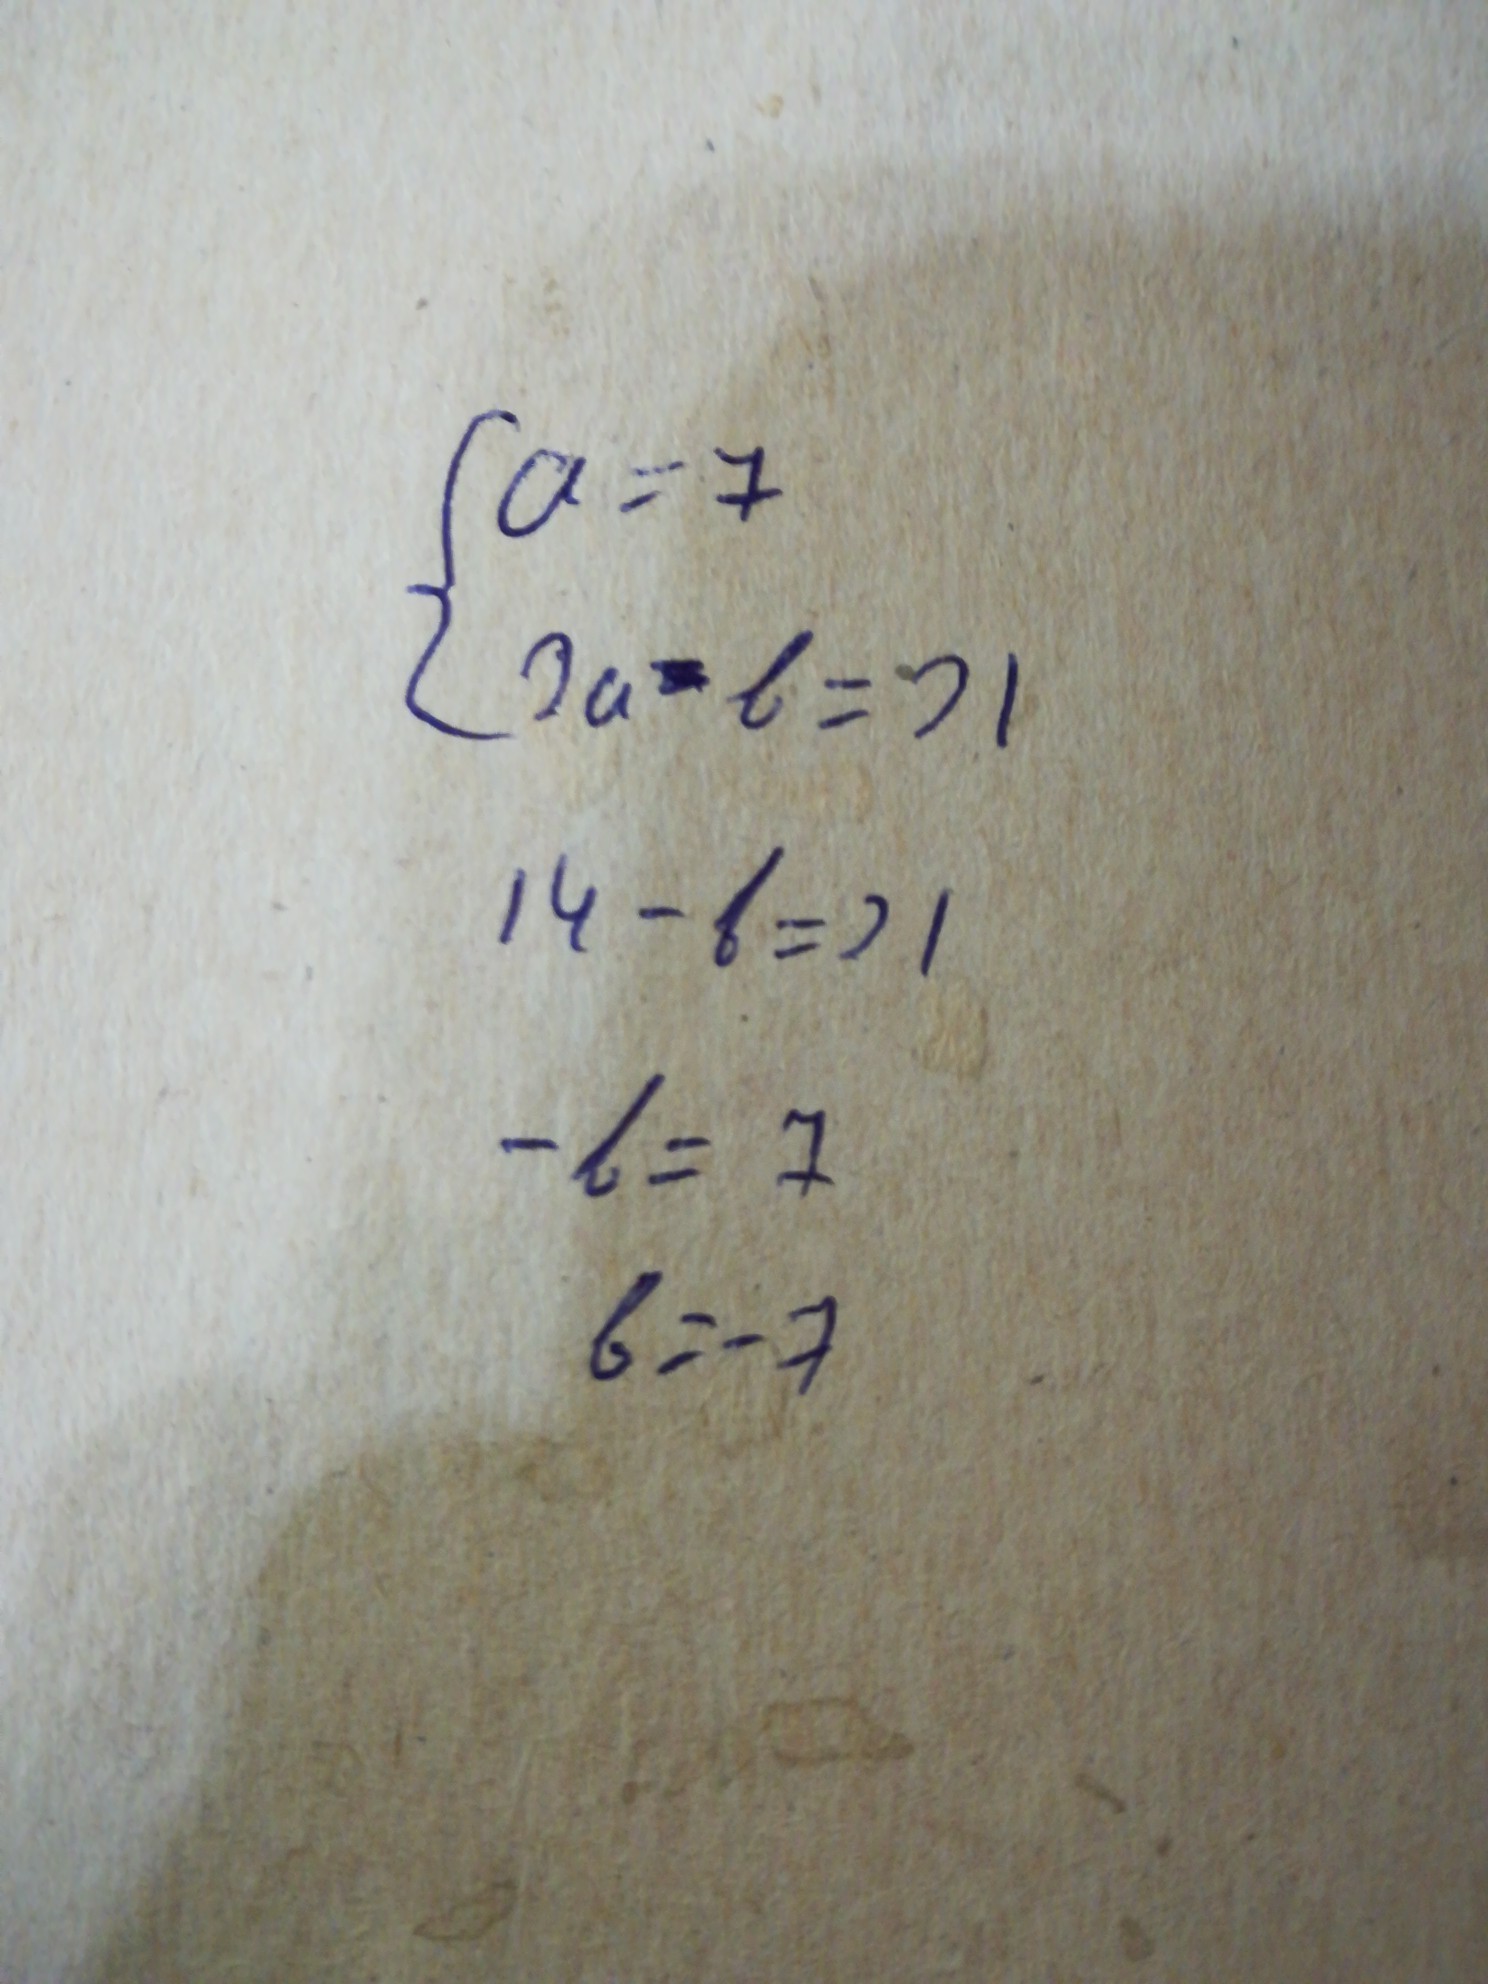 { a = 7
2a - b = 21
14 - b = 21
- b = 7
b = - 7